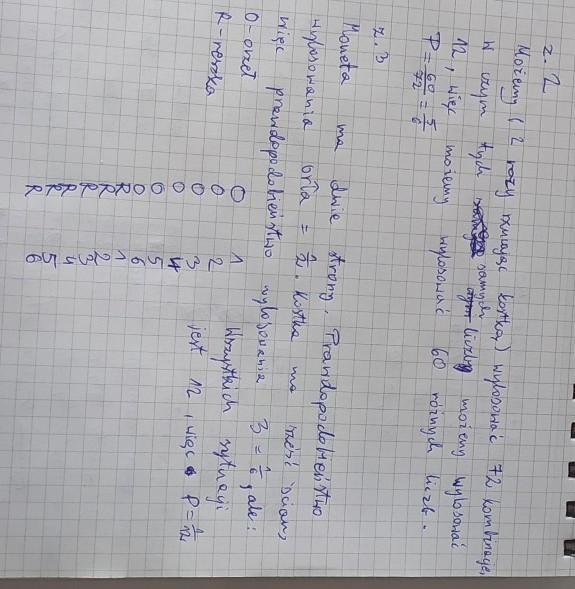 z. 2
Możemy (2 razy rzucając kostką) wylosować 72 kombinacje,
w czym tych samych liczb możemy wylosować
12, więc możemy wylosować 60 różnych liczb.
P = 60/72 = 5/6
z. 3
Moneta ma dwie strony. Prawdopodobieństwo
wylosowania orła = 1/2. Kostka ma sześć ścian,
więc prawdopodobieństwo wylosowania 3 = 1/6, ale:
O - orzeł
R - reszka
O 1
O 2
O 3
O 4
O 5
O 6
R 1
R 2
R 3
R 4
R 5
R 6
Wszystkich sytuacji
jest 12, więc P = 1/12